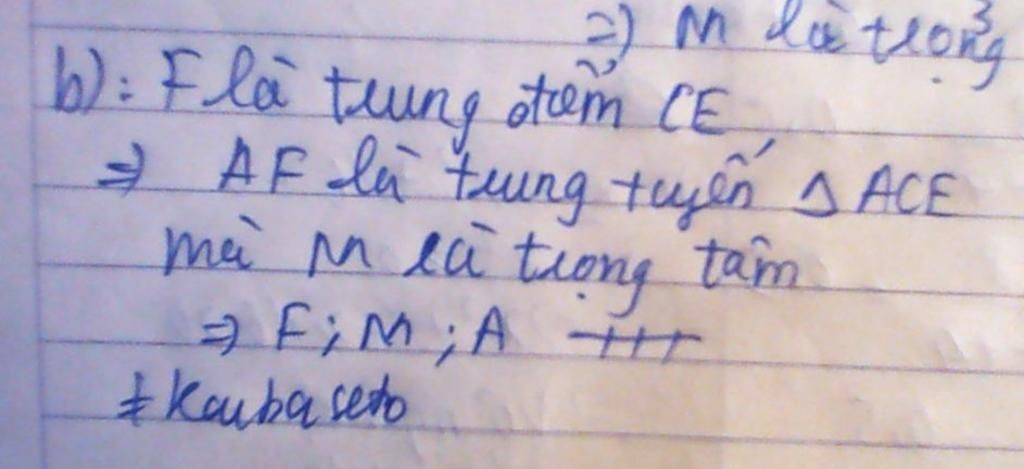 => M là trọng
b): F là trung điểm CE
=> AF là trung tuyến Δ ACE
mà M là trọng tâm
=> F; M; A